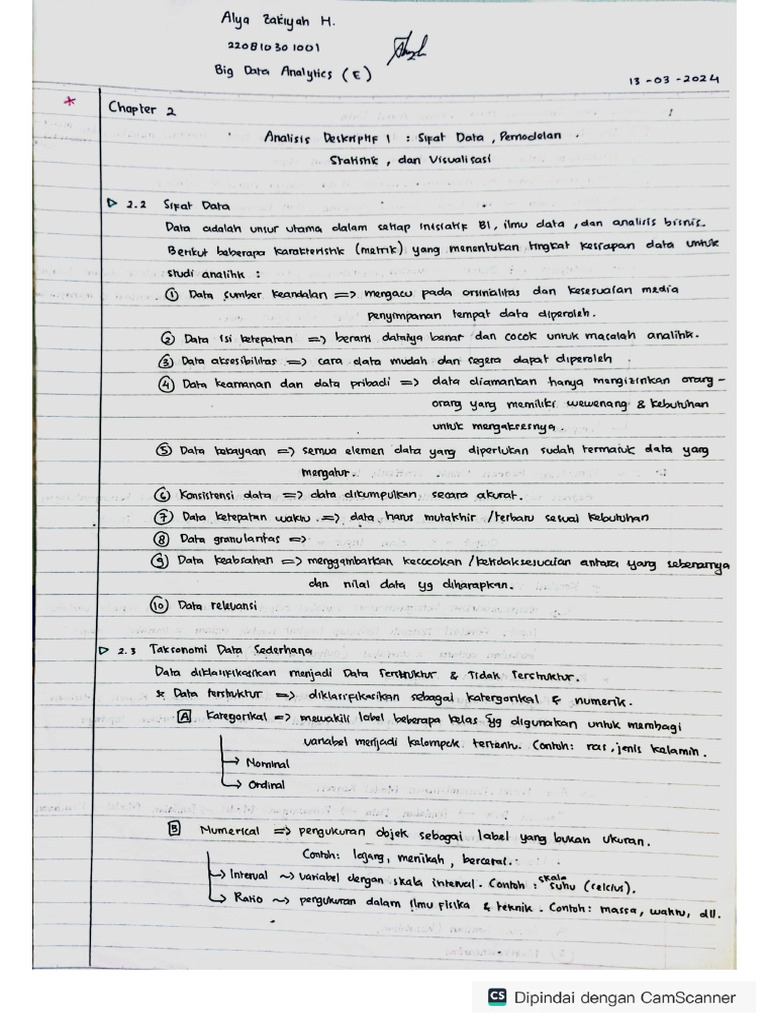 Alya Zakiyah H.
220810301001
Big Data Analytics (E)
13-03-2024
*
Chapter 2
Analisis Deskriptif 1 : Sifat Data, Pemodelan
Statistik, dan Visualisasi
2.2 Sifat Data
Data adalah unsur utama dalam setiap inisiatif BI, ilmu data, dan analisis bisnis.
Berikut beberapa karakteristik (metrik) yang menentukan tingkat kesiapan data untuk
studi analitik :
① Data sumber keandalan => mengacu pada orsinialitas dan kesesuaian media
penyimpanan tempat data diperoleh.
② Data isi ketepatan => berarti datanya benar dan cocok untuk masalah analitik.
③ Data aksesibilitas => cara data mudah dan segera dapat diperoleh.
④ Data keamanan dan data pribadi => data diamankan hanya mengizinkan orang-
orang yang memiliki wewenang & kebutuhan
untuk mengaksesnya.
⑤ Data kekayaan => semua elemen data yang diperlukan sudah termasuk data yang
mengatur.
⑥ Konsistensi data => data dikumpulkan secara akurat.
⑦ Data ketepatan waktu => data harus mutakhir /terbaru sesuai kebutuhan
⑧ Data granularitas =>
⑨ Data keabsahan => menggambarkan kecocokan /ketidaksesuaian antara yang sebenarnya
dan nilai data yg diharapkan.
⑩ Data relevansi
2.3 Taksonomi Data Sederhana
Data diklasifikasikan menjadi Data Terstruktur & Tidak Terstruktur.
* Data terstruktur => diklasifikasikan sebagai katergorikal & numerik.
A Kategorikal => mewakili label beberapa kelas yg digunakan untuk membagi
variabel menjadi kelompok tertentu. Contoh: ras, jenis kelamin.
→ Nominal
→ Ordinal
B Numerical => pengukuran objek sebagai label yang bukan ukuran.
Contoh: lajang, menikah, bercerai.
→ Interval ~> variabel dengan skala interval. Contoh : skala suhu (celcius).
→ Ratio ~> pengukuran dalam ilmu fisika & teknik. Contoh: massa, waktu, dll.
CS Dipindai dengan CamScanner